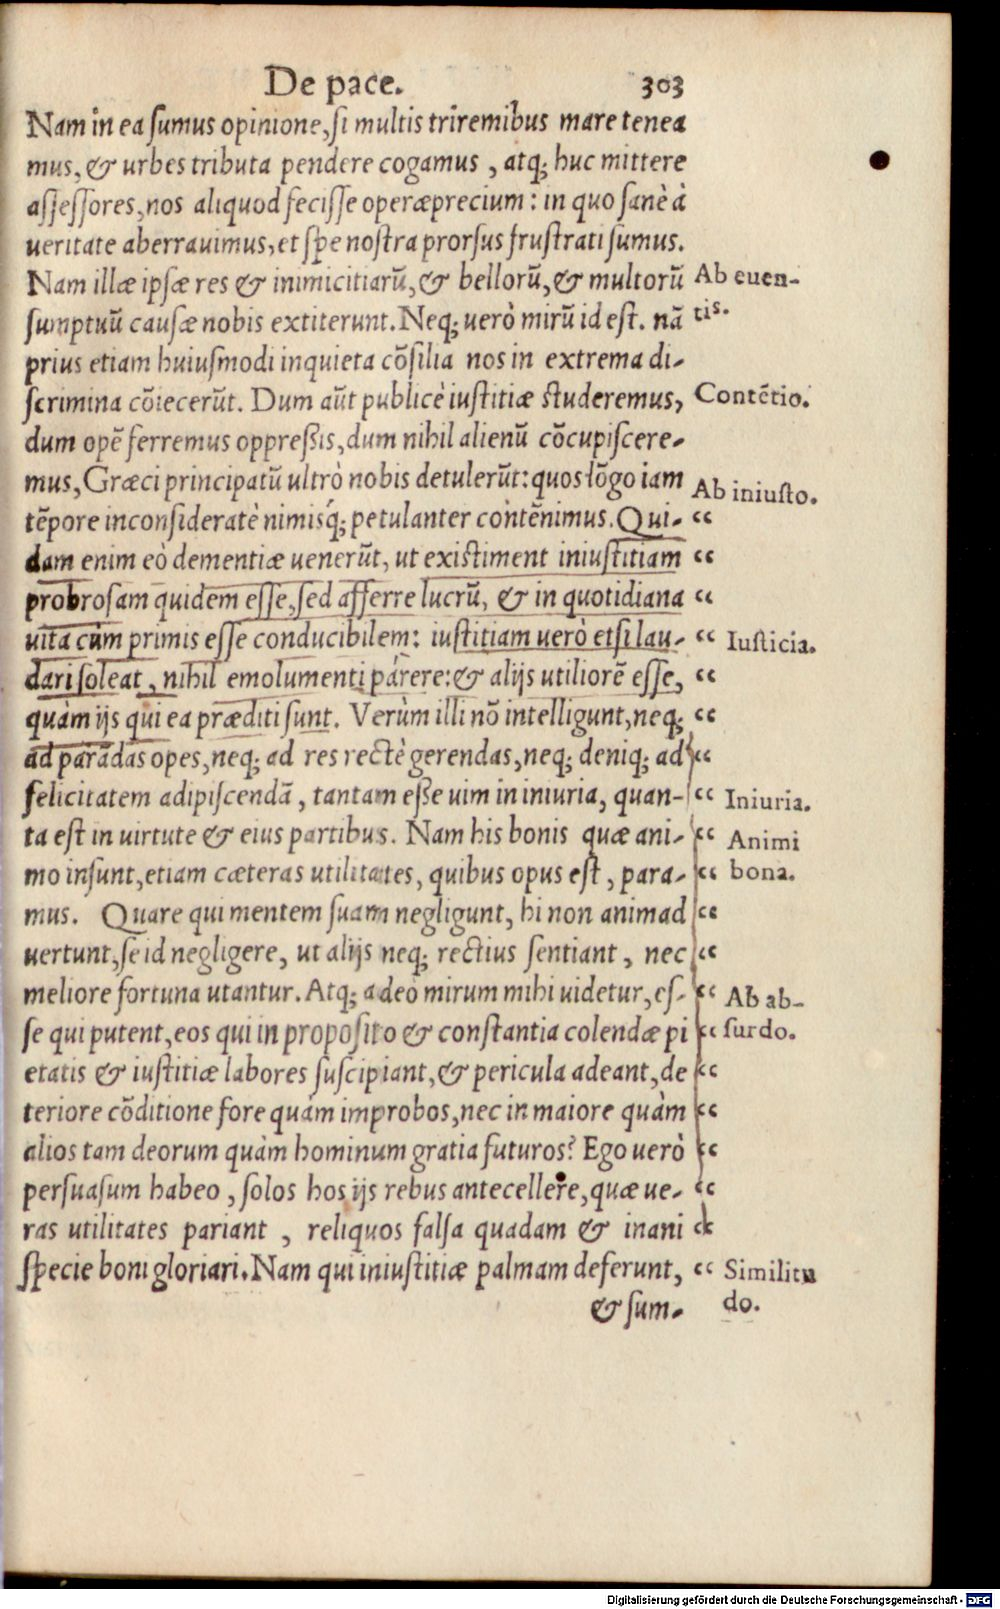 De pace. 303
Nam in ea sumus opinione, si multis triremibus mare tenea
mus, & urbes tributa pendere cogamus, atq; huc mittere
assessores, nos aliquod fecisse operæprecium: in quo sanè à
ueritate aberrauimus, et spe nostra prorsus frustrati sumus.
Nam illæ ipsæ res & inimicitiarũ, & bellorũ, & multorũ
Ab euen-
sumptuũ causæ nobis extiterunt. Neq; uerò mirũ id est. nã
tis.
prius etiam huiusmodi inquieta cõsilia nos in extrema di-
scrimina cõiecerũt. Dum aũt publicè iustitiæ studeremus,
Contẽtio.
dum opẽ ferremus oppreßis, dum nihil alienũ cõcupiscere-
mus, Græci principatũ ultrò nobis detulerũt: quos lõgo iam
Ab iniusto.
tẽpore inconsideratè nimisq́; petulanter contẽnimus. Qui- “
dam enim eò dementiæ uenerũt, ut existiment iniustitiam “
probrosam quidem esse, sed afferre lucrũ, & in quotidiana “
uita cùm primis esse conducibilem: iustitiam uerò etsi lau- “
Iusticia.
dari soleat, nihil emolumenti parere: & alijs utiliorẽ esse, “
quàm ijs qui ea præditi sunt. Verùm illi nõ intelligunt, neq; “
ad parãdas opes, neq; ad res rectè gerendas, neq; deniq; ad “
felicitatem adipiscendã, tantam eße uim in iniuria, quan- “
Iniuria.
ta est in uirtute & eius partibus. Nam his bonis quæ ani- “
Animi
mo insunt, etiam cæteras utilitates, quibus opus est, para- “
bona.
mus. Quare qui mentem suam negligunt, hi non animad “
uertunt, se id negligere, ut alijs neq; rectius sentiant, nec “
meliore fortuna utantur. Atq; adeò mirum mihi uidetur, es- “
Ab ab-
se qui putent, eos qui in proposito & constantia colendæ pi “
surdo.
etatis & iustitiæ labores suscipiant, & pericula adeant, de “
teriore cõditione fore quàm improbos, nec in maiore quàm “
alios tam deorum quàm hominum gratia futuros? Ego uerò “
persuasum habeo, solos hos ijs rebus antecellere, quæ ue- “
ras utilitates pariant, reliquos falsa quadam & inani “
specie boni gloriari. Nam qui iniustitiæ palmam deferunt, “
Similitu
& sum-
do.
Digitalisierung gefördert durch die Deutsche Forschungsgemeinschaft - DFG